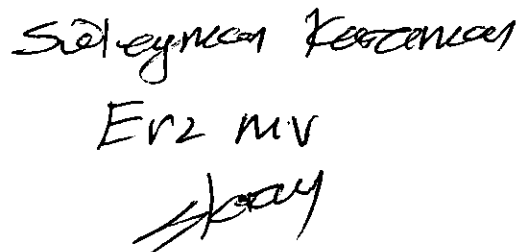 Süleyman Karaman
Erz mv